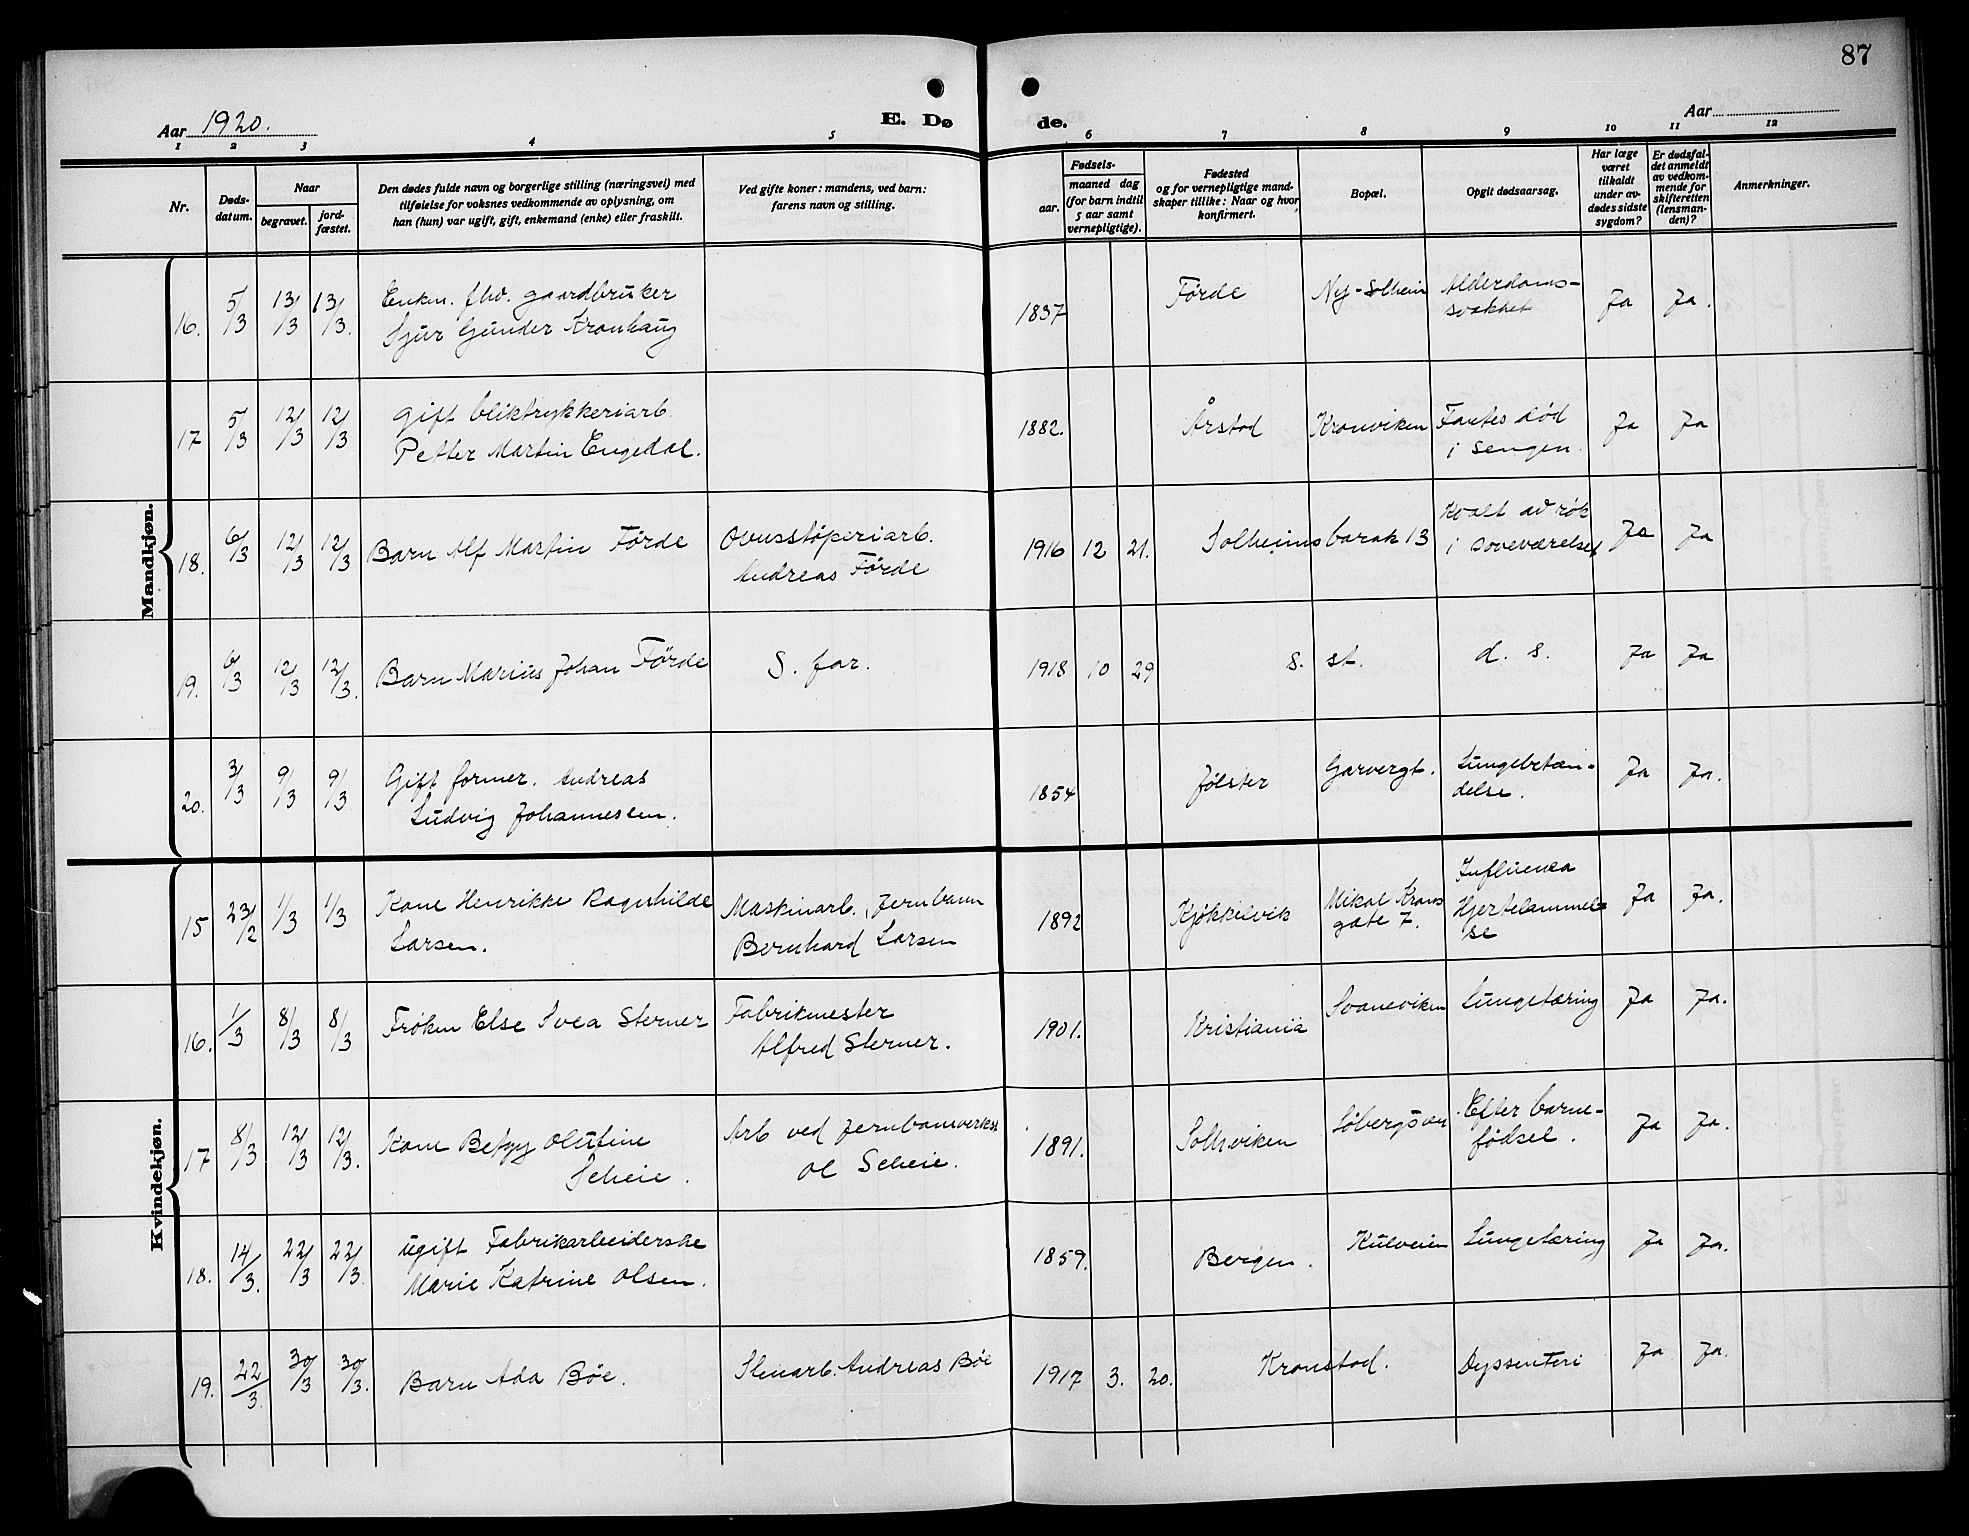 87
Aar 1920.
E. Dø de.
Aar
1 2 3 4 5 6 7 8 9 10 11 12
Nr.
Døds-
datum.
Naar
begravet.
jord-
fæstet.
Den dødes fulde navn og borgerlige stilling (næringsvei) med
tilføielse for voksnes vedkommende av oplysning, om
han (hun) var ugift, gift, enkemand (enke) eller fraskilt.
Ved gifte koner: mandens, ved barn:
farens navn og stilling.
Fødsels-
aar.
maaned dag
(for barn indtil
5 aar samt
vernepligtige).
Fødested
og for vernepligtige mand-
skaper tillike: Naar og hvor
konfirmert.
Bopæl.
Opgit dødsaarsag.
Har læge
været
tilkaldt
under av-
dødes sidste
sygdom?
Er dødsfal-
det anmeldt
av vedkom-
mende for
skifteretten
(lensman-
den)?
Anmerkninger.
Mandkjøn.
16. 5/3 13/3 13/3. Enkm. fhv. gaardbruker
Sjur Gunder Kronhaug
1837 Førde Ny-Solheim Alderdoms-
svakhet
Ja Ja.
17 5/3 12/3 12/3 Gift bliktrykkeriarb.
Petter Martin Engedal.
1882. Årstad Kronviken Fantes død
i sengen.
Ja Ja
18. 6/3 12/3 12/3 Barn Alf Martin Førde
Ovnsstøperiarb.
Andreas Førde
1916 12 21. Solheimsbarak 13 Kvalt av røk
i soveværelset
Ja Ja
19. 6/3 12/3 12/3. Barn Marius Johan Førde
S. far.
1918 10 29 s. st. d. s. Ja Ja
20. 3/3 9/3 9/3 Gift former. Andreas
Ludvig Johannessen.
1854 Jølster Garvergt. Lungebetæn-
delse.
Ja Ja.
Kvindekjøn.
15 23/2 1/3 1/3 Kone Henrikke Ragnhilde
Larsen.
Maskinarb. Jernbann
Bernhard Larsen
1892 Kjøkkelvik Mikal Krons
gate 7.
Influensa
Hjertelammel-
se
Ja Ja.
16. 1/3 8/3 8/3 Frøken Else Svea Sterner
Fabrikmester
Alfred Sterner.
1901. Kristiania Svaneviken Lungetæring Ja Ja.
17 8/3 12/3 12/3. Kone Betzy Olufine
Scheie.
Arb ved Jernbanverkst
Ol Scheie.
1891. Solhviken Søbergsvei Efter barne-
fødsel.
Ja Ja.
18. 14/3. 22/3 22/3. ugift Fabrikarbeiderske
Marie Katrine Olsen.
1859. Bergen. Kulveien Lungetæring Ja Ja.
19. 22/3. 30/3 30/3. Barn Ada Bøe.
Stenarb. Andreas Bøe
1917 3. 20. Kronstad. Dyssenteri Ja Ja.